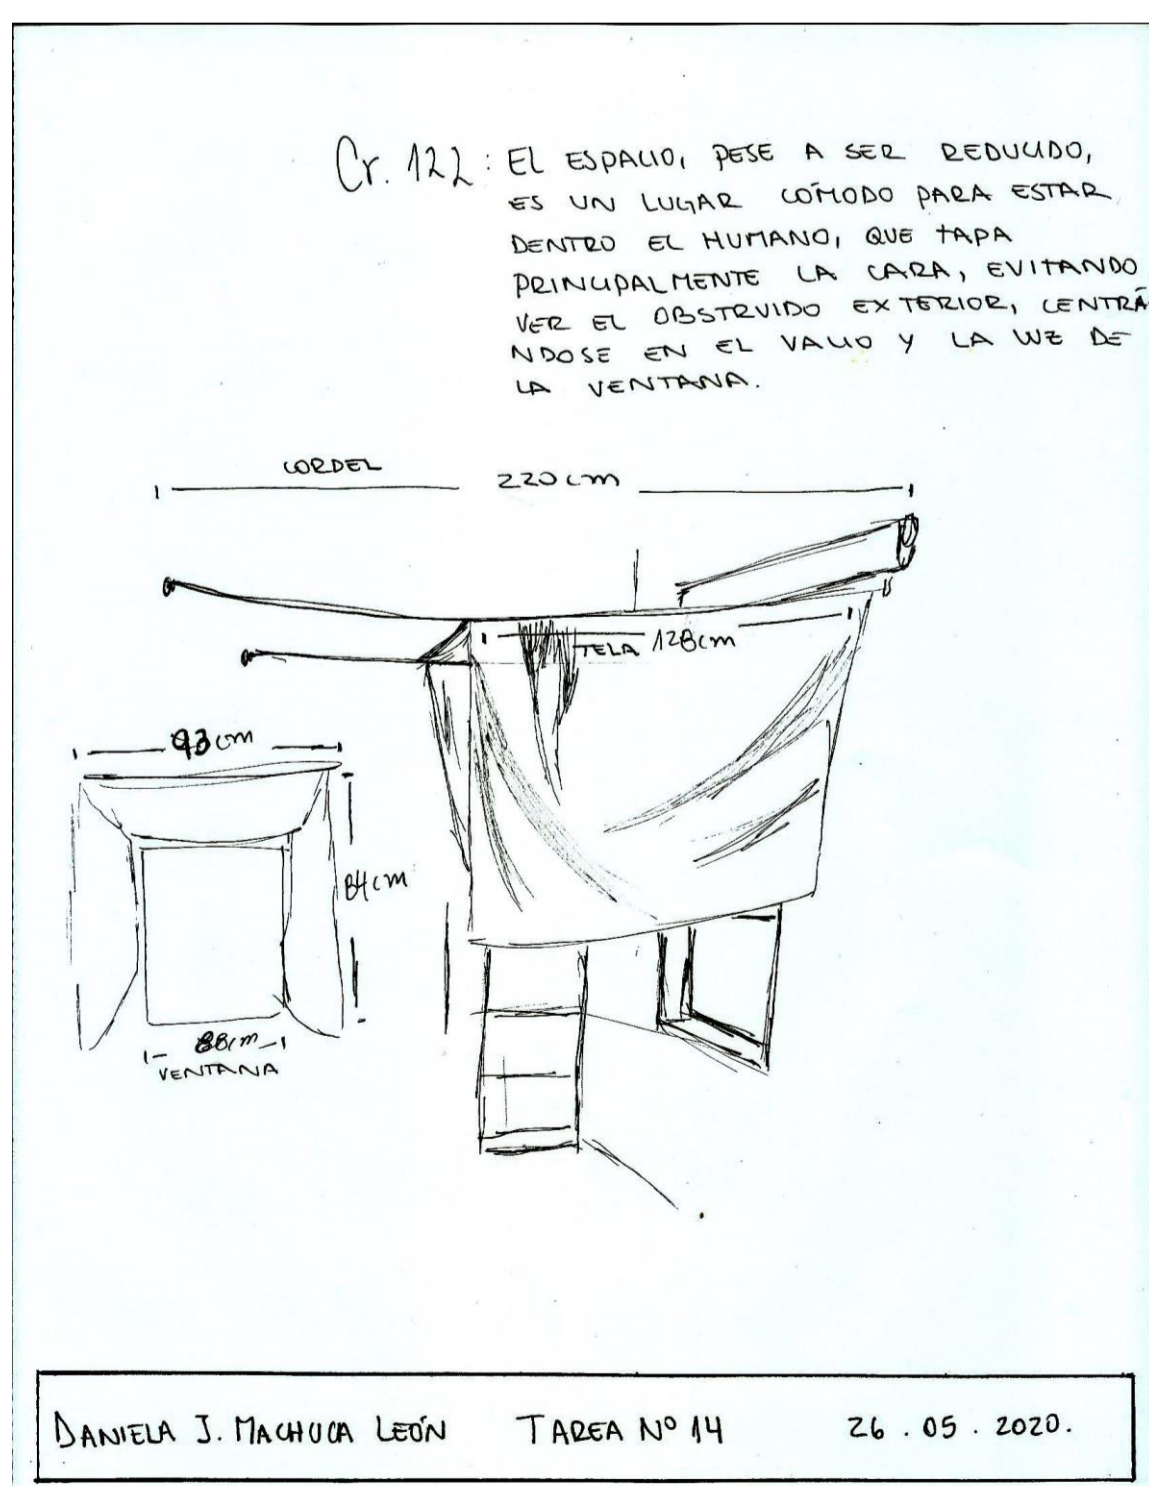 Cr. 122: EL ESPACIO, PESE A SER REDUCIDO,
ES UN LUGAR CÓMODO PARA ESTAR
DENTRO EL HUMANO, QUE TAPA
PRINCIPALMENTE LA CARA, EVITANDO
VER EL OBSTRUIDO EXTERIOR, CENTRÁ
NDOSE EN EL VACIO Y LA LUZ DE
LA VENTANA.
CORDEL 220cm
TELA 128cm
93cm
84cm
88cm
VENTANA
DANIELA J. MACHUCA LEÓN TAREA Nº 14 26.05.2020.